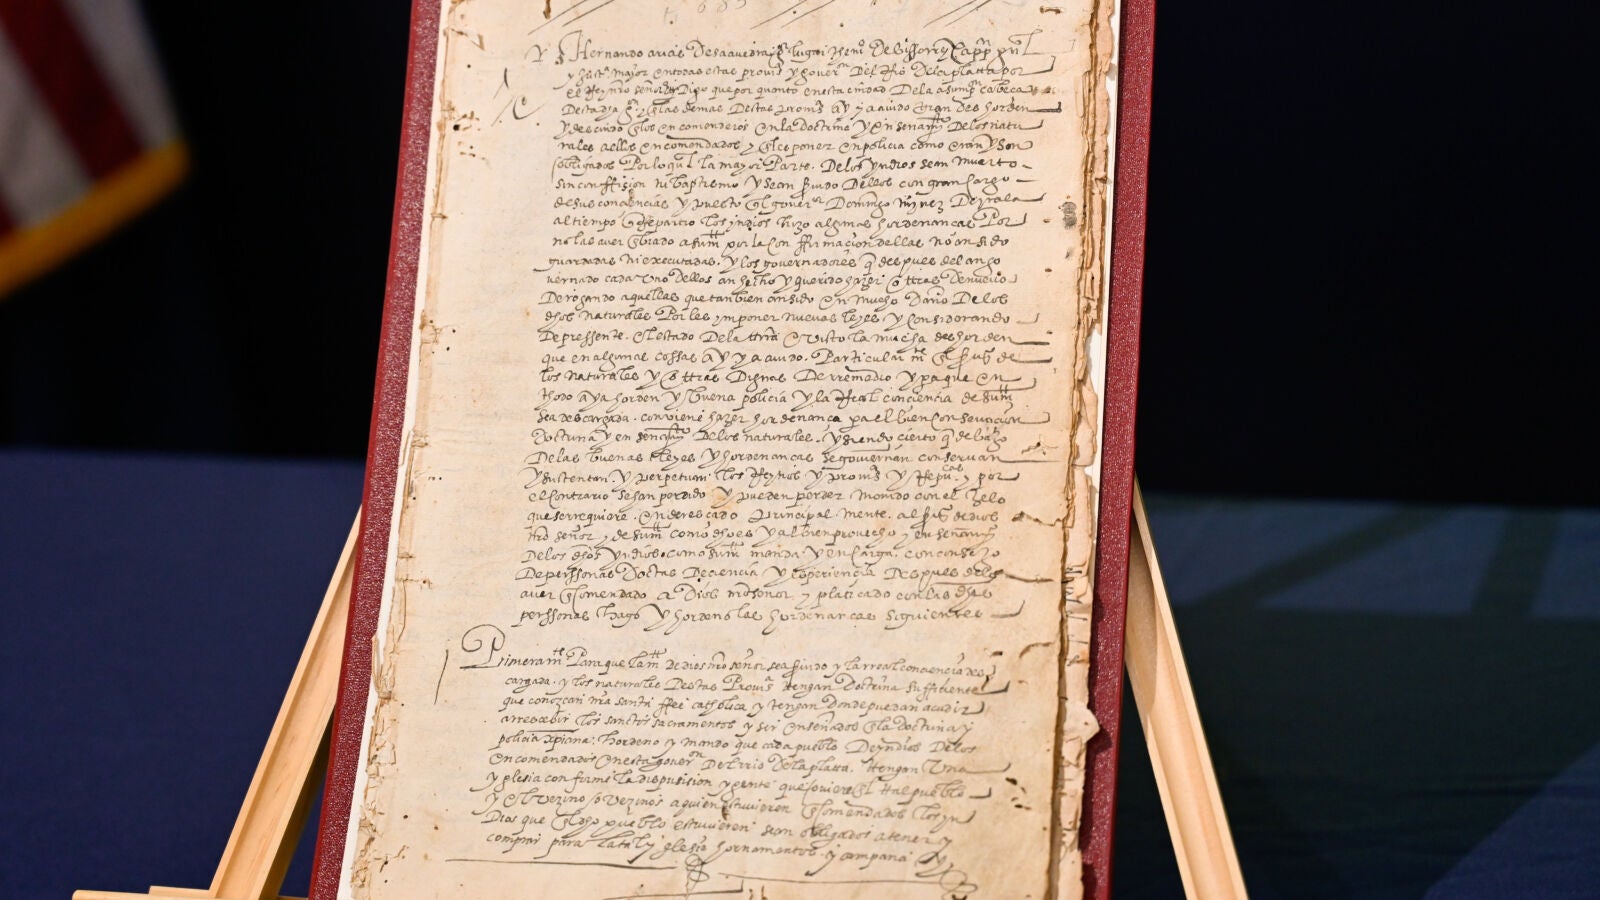 Hernando arias Desaavedra lugar then^e De Vissorrey Capp^n g^nl
y just^a mayor en todas estas provi^as y gover^on Del Rio Delaplatta por
el Rey nro señor Digo que por quanto en esta ciudad Dela asump^on cabeca
Destas y las demas Destas provi^as ay y a avido gran des horden
y descuido en los en comenderos en la doctrina y en senam^to Delos natu
rales a ellos en comendados y en los poner en policia como eran y son
obligados Por lo qual la mayor Parte. Delos yndios sean muerto
sin conffision ni baptismo y sean servido Dellos con gran Cargo
de sus conciencias y puesto quel gover^or Domingo m^inez De yrala
al tiempo que Repartio los indios hizo algunas hordenancas Por
no las aver enbiado a su mag^t por la con ffirmacion dellas no an sido
guardadas ni executadas. y los governadores q despues del an go
vernado cada uno dellos an hecho y querido hazer otras De nuevo
Derogando aquellas que tanbien an sido en mucho Daño De los
dhos naturales Por les ymponer nuevas leyes y Considerando
De pressente. el estado De la tierra e visto la mucha des horden
que en algunas cossas ay y a avido. Particular m^te en el servi^o de
los naturales y otras Dignas De rremedio y pa que en
thodo aya horden y buena policia y la Real conciencia de su mag^t
sea descargada. conviene hazer hordenanca pa el bien Conservacion
Doctrina y en senam^to De los naturales. y siendo cierto q debaxo
De las buenas leyes y hordenancas se goviernan conservan
y sustentan. y perpetuan los Reynos y provi^as y Repu^cas y por
el contrario se an perdido y pueden perder movido con el zelo
que se rrequiere. enderescado principal mente. al servi^o de dios
nro señor y de su mag^t como dho es y al bien provecho y en senam^to
De los dhos yndios. como su mag^t manda y en carga. con consejo
De perssonas Doctas De ciencia y experiencia Despues de lo
aver encomendado a Dios nro señor y platicado con las dhas
perssonas hago y hordeno las hordenancas siguientes
Primeram^te Para que la mag^t de dios nro señor sea servido y la rreal conciencia des
cargada. y los naturales Destas Provi^as tengan Doctrina sufficiente
que conozcan nra santa ffee catholica y tengan donde puedan acudir
a rrescebir los sanctos sacramentos y ser enseñados en la doctrina y
policia xpiana. hordeno y mando que cada pueblo De yndios De los
en comendados en esta gover^on Del rrio Delaplatta. tengan una
yglesia con forme la dispusision y gente que oviere en tal pueblo
y el vezino o vezinos a quien estuvieren encomendados los yn
Dios que en el dho pueblo estuvieren sean obligados a tener y
comprar para la tal yglesia hornamentos. y campana